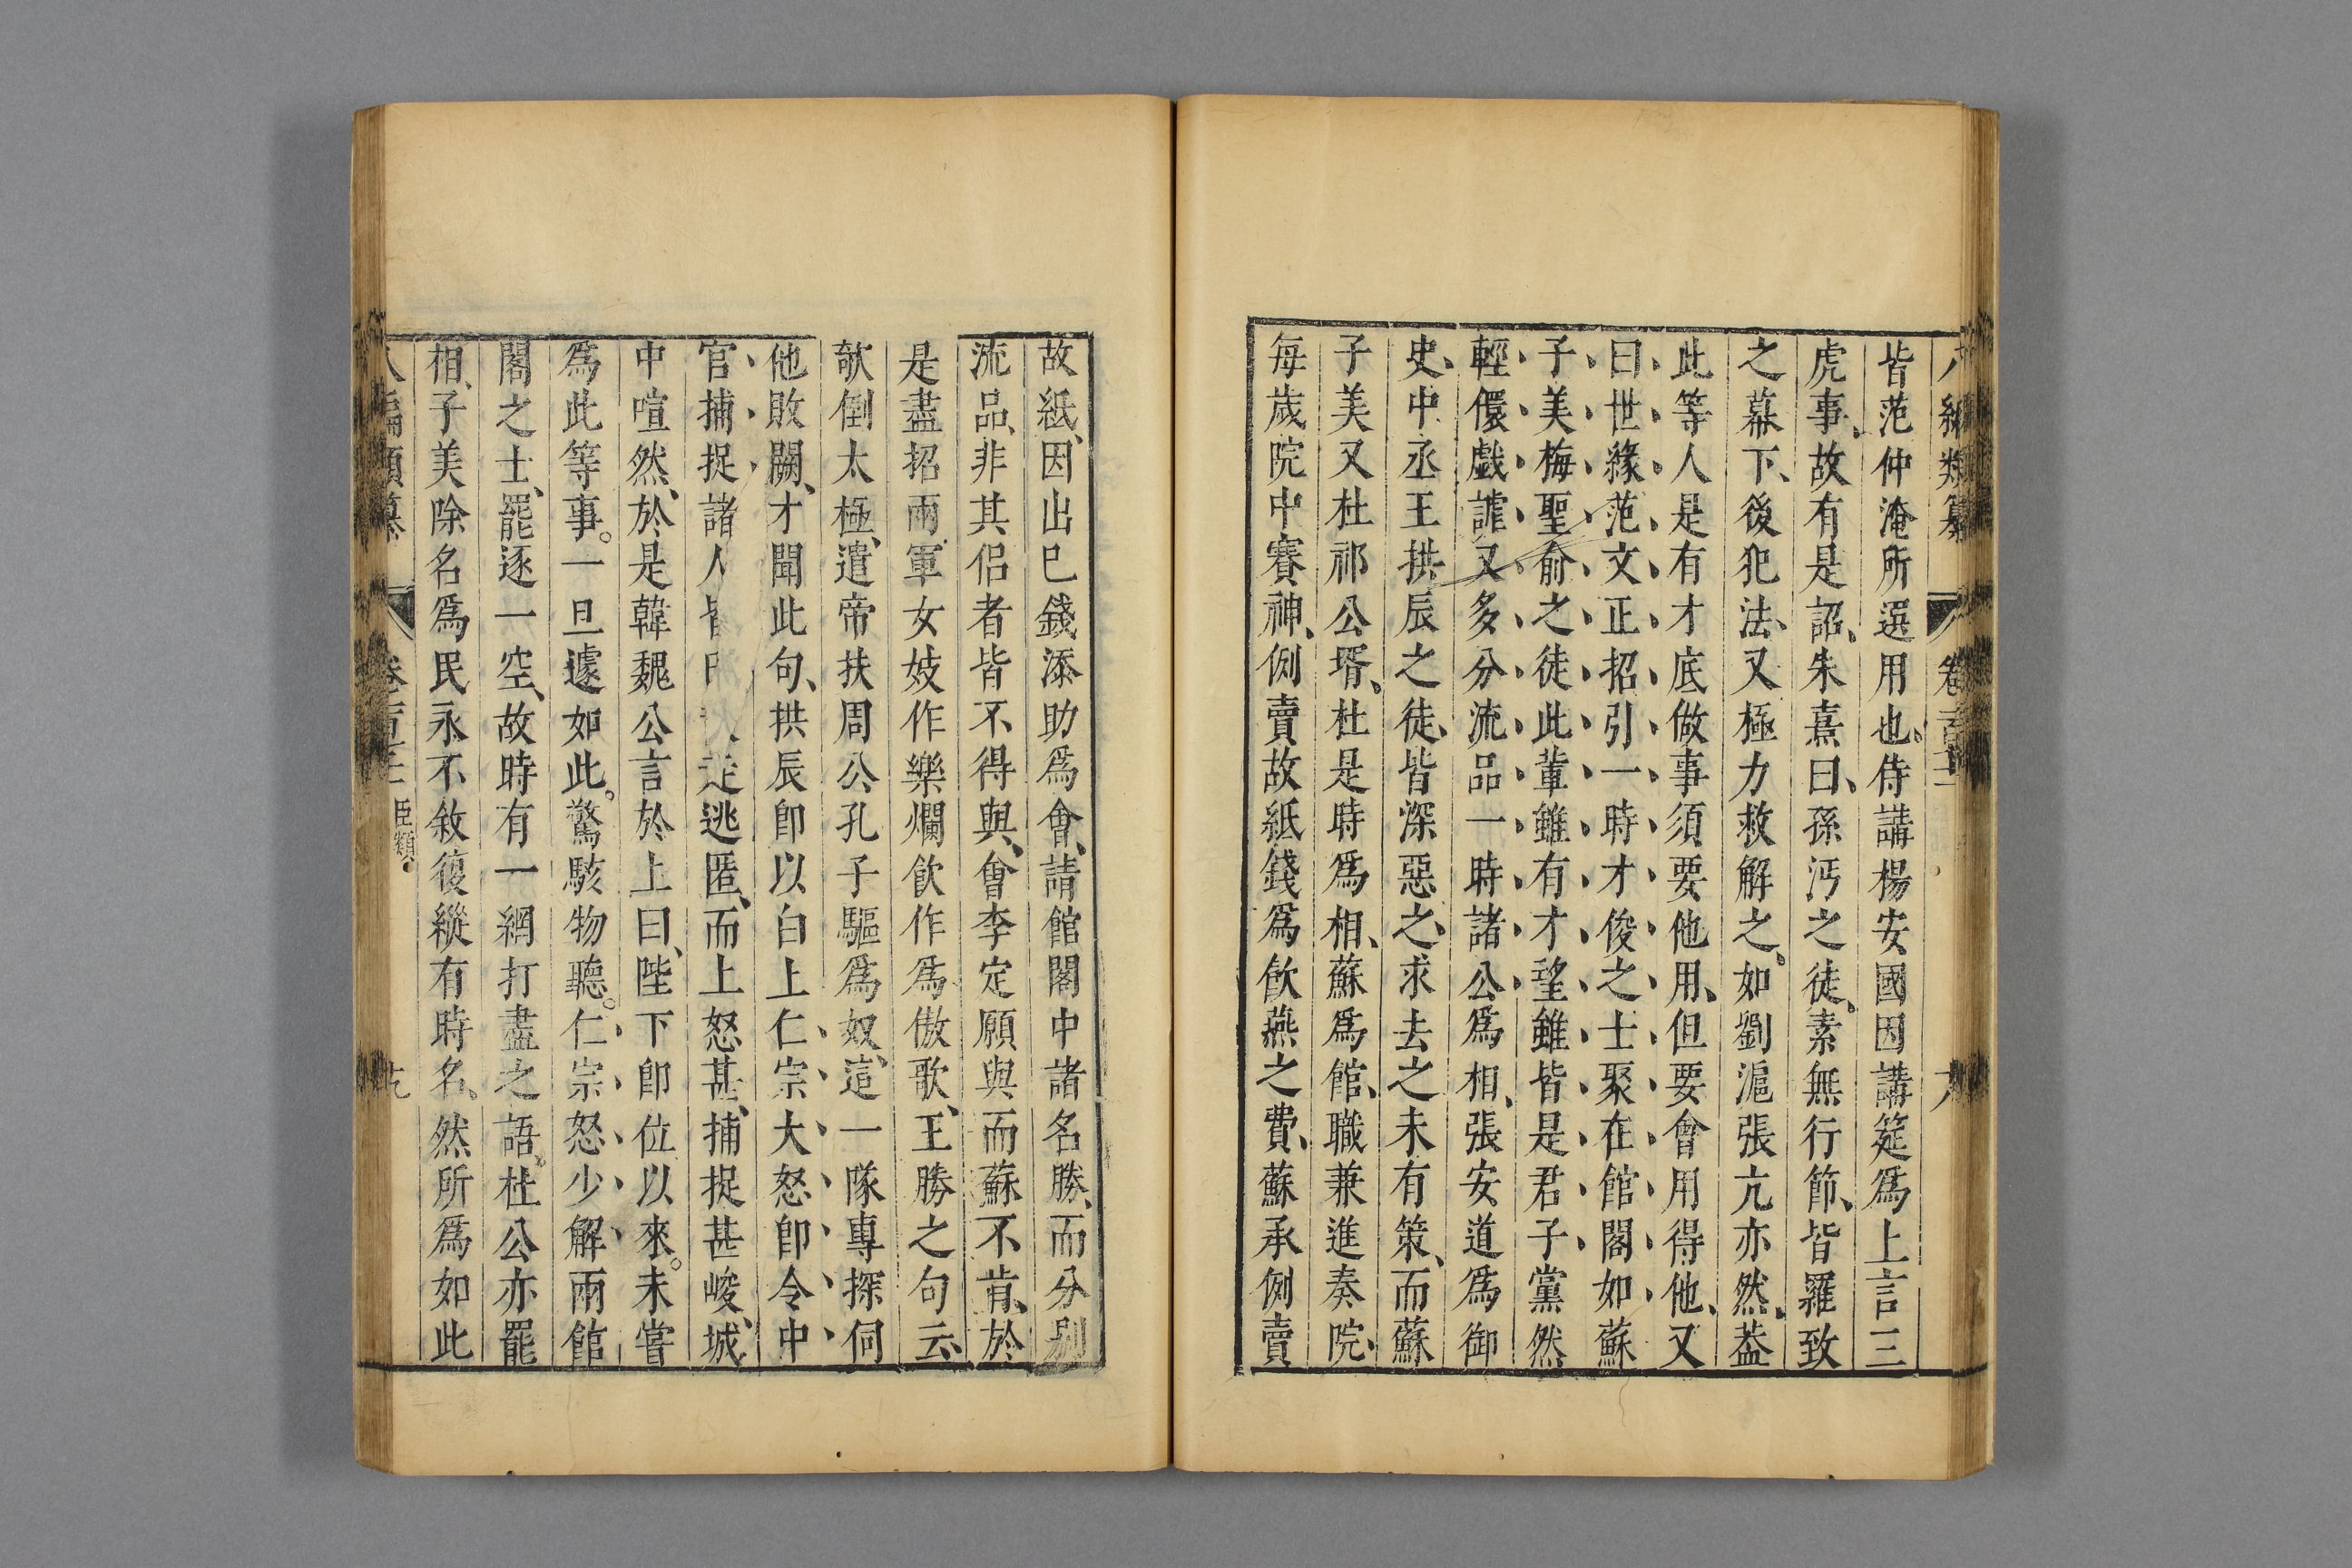 八編類纂 卷二百十二 十八
皆范仲淹所選用也、侍講楊安國因講筵爲上言三
虎事、故有是詔、朱熹曰、孫沔之徒、素無行節、皆羅致
之幕下、後犯法、又極力救解之、如劉滬張亢亦然、葢
此等人是有才底做事須要他用、但要會用得他、又
曰世緣范文正招引一時才俊之士聚在館閣如蘇
子美梅聖俞之徒此輩雖有才望雖皆是君子黨然
輕儇戲謔又多分流品一時諸公爲相、張安道爲御
史、中丞王拱辰之徒、皆深惡之、求去之未有策、而蘇
子美又杜祁公壻、杜是時爲相、蘇爲館、職兼進奏院、
每歲院中賽神、例賣故紙錢爲飲燕之費、蘇承例賣
故紙、因出已錢添助爲會、請館閣中諸名勝、而分別
流品、非其侶者皆不得與、會李定願與而蘇不肯、於
是盡招兩軍女妓作樂爛飲作爲傲歌、王勝之句云、
欹倒太極、遣帝扶周公孔子驅爲奴、這一隊專探伺
他敗闕、才聞此句、拱辰卽以白上仁宗大怒卽令中
官捕捉諸人皆走逃匿、而上怒甚、捕捉甚峻、城
中喧然、於是韓魏公言於上曰、陛下卽位以來。未嘗
爲此等事。一旦遽如此。驚駭物聽。仁宗怒少解、兩館
閣之士、罷逐一空、故時有一網打盡之語、杜公亦罷
相、子美除名爲民永不敘復縱有時名、然所爲如此
八編類纂 臣類